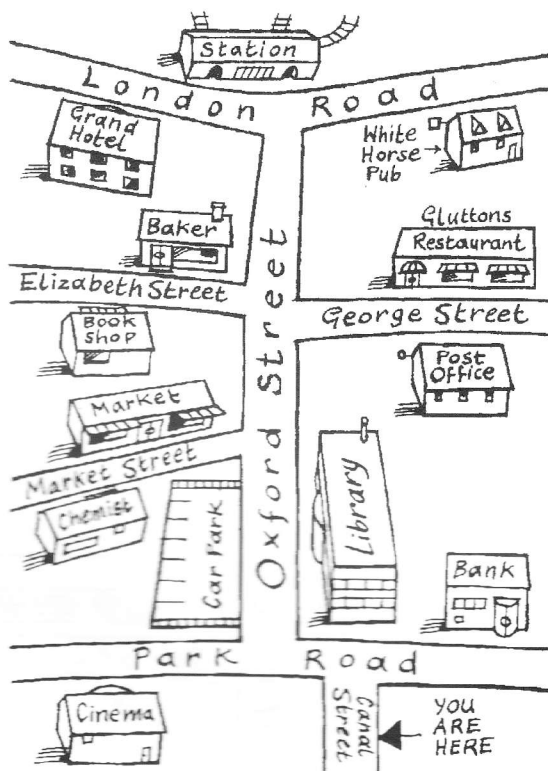 Station
London Road
Grand
Hotel
White
Horse
Pub
Baker
Gluttons
Restaurant
Elizabeth Street
George Street
Oxford Street
Book
Shop
Post
Office
Market
Market Street
Library
Chemist
Car Park
Bank
Park Road
Cinema
Canal
Street
YOU
ARE
HERE